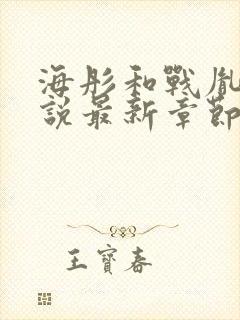 海彤和戰胤
說最新章節
王寶春